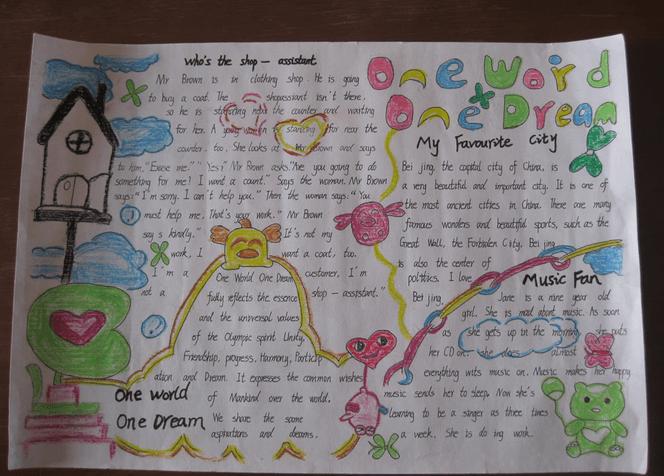 Who's the shop - assistant
Mr Brown is in clothing shop. He is going
to buy a coat. The shopassiant isn't there.
so he is standing near the counter and waiting
for her. A young woman is standing for near the
counter. too. She looks at Mr Brown and says
to him, "Excuse me." "Yes?" Mr Brown asks. "Are you going to do
something for me? I want a count." Says the woman. Mr Brown
says: "I'm sorry. I can't help you." Then the woman says: "You
must help me. That's your work." Mr Brown
say s kindly." It's not my
work, I want a coat, too.
I'm a customer, I'm
not a shop - assistant."
One World One Dream
fully reflects the essence
and the universal values
of the Olympic spirit Unity,
Friendship, progress, Harmony, Particip
ation and Dream. It expresses the common wishes
of Mankind over the world.
We share the same
aspirations and dreams.
One world
One Dream
One Word
One Dream
My Favourite City
Bei jing, the capital city of China, is
a very beautiful and important city. It is one of
the most ancient cities in China. There are many
famous wonders and beautiful sports, such as the
Great Wall, the Forbiden City. Bei jing
is also the center of
politics. I love
Bei jing.
Music Fan
Jane is a nine year old
girl. She is mad about music. As soon
as she gets up in the morning she puts
her CD on. she does almost
everything wits music on. Music makes her happy
music sends her to sleep. Now she's
learning to be a singer as three times
a week. She is do ing work.